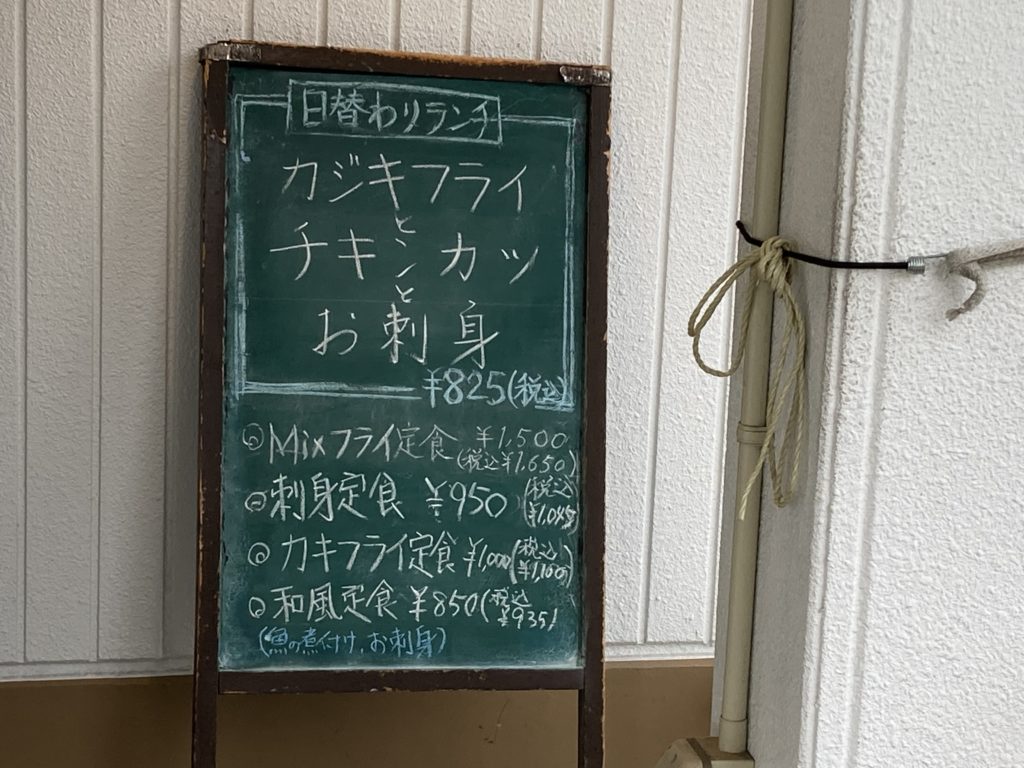 日替わりランチ
カジキフライ
と
チキンカツ
と
お刺身
¥825(税込)
Mixフライ定食 ¥1,500
(税込¥1,650)
刺身定食 ¥950 (税込
¥1,045)
カキフライ定食 ¥1,000 (税込
¥1,100)
和風定食 ¥850 (税込
¥935)
(魚の煮付け、お刺身)